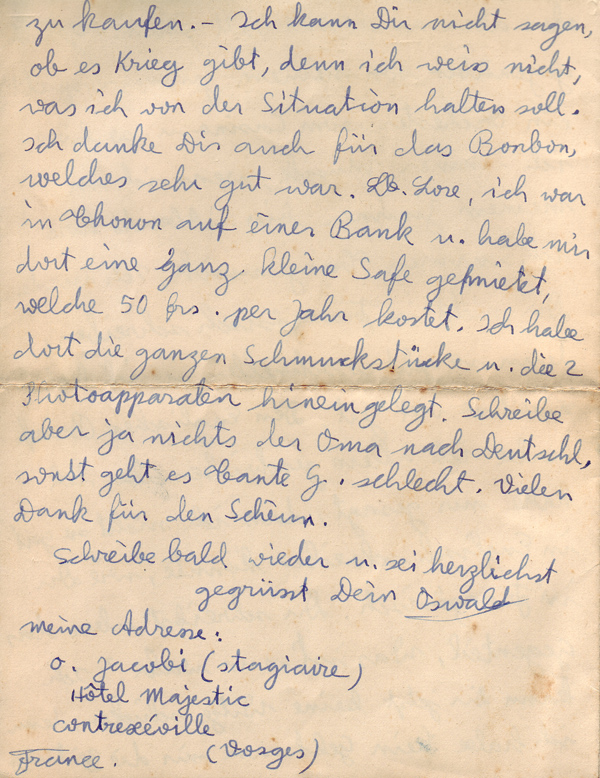 zu kaufen. – Ich kann Dir nicht sagen,
ob es Krieg gibt, denn ich weiss nicht,
was ich von der Situation halten soll.
Ich danke Dir auch für das Bonbon,
welches sehr gut war. Lb. Lore, ich war
in Thonon auf einer Bank u. habe mir
dort eine ganz kleine Safe gemietet,
welche 50 frs. per Jahr kostet. Ich habe
dort die ganzen Schmuckstücke u. die 2
Photoapparaten hineingelegt. Schreibe
aber ja nichts der Oma nach Deutschl,
sonst geht es Tante G. schlecht. Vielen
Dank für den Schein.
Schreibe bald wieder u. sei herzlichst
gegrüsst Dein Oswald
meine Adresse:
O. Jacobi (stagiaire)
Hôtel Majestic
Contrexéville
(Vosges)
France.